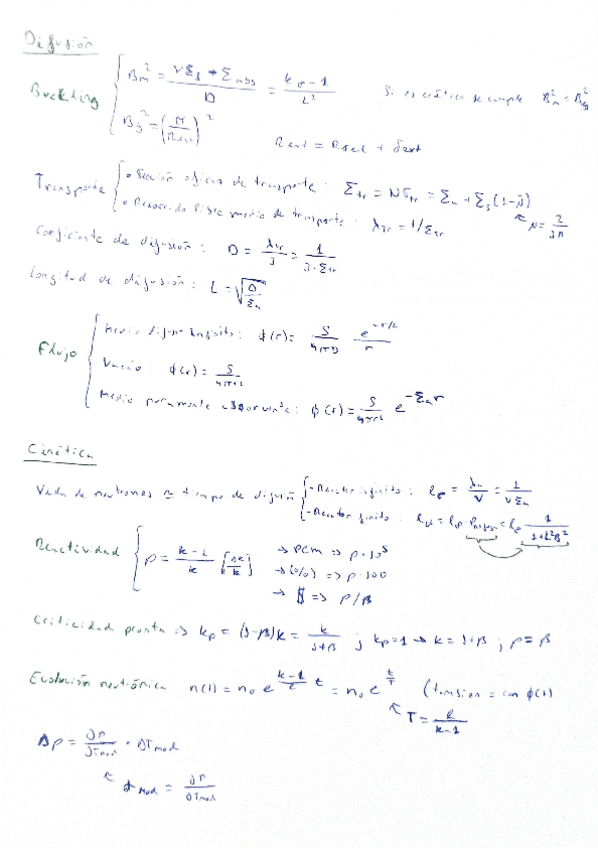 Difusión
Buckling { Bm² = (νΣf + Σabs)/D = (k∞ - 1)/L²   Si es crítico se cumple Bm² = Bg²
Bg² = (π/Rext)²   Rext = Rreal + δext
Transporte { • Sección eficaz de transporte: Σtr = Nσtr = Σa + Σs(1-μ̄)
• Recorrido libre medio de transporte: λtr = 1/Σtr   ↖ μ = 2/3A
Coeficiente de difusión: D = λtr/3 = 1/(3·Σtr)
Longitud de difusión: L = √(D/Σa)
Flujo { Medio difusor infinito: ϕ(r) = S/4πD e^(-r/L)/r
Vacío: ϕ(r) = S/4πr²
Medio puramente absorvente: ϕ(r) = S/4πr² e^(-Σa r)
Cinética
Vida de neutrones ≈ tiempo de difusión { - Reactor infinito: l∞ = λa/v = 1/(vΣa)
- Reactor finito: l = l∞ · = l∞ 1/(1+L²B²)
Reactividad { ρ = (k-1)/k [Δk/k]   → pcm => ρ·10⁵
→ (%) => ρ·100
→ $ => ρ/β
Criticidad pronta => kp = (1-β)k = k/(1+β) ; kp=1 → k = 1+β ; ρ = β
Evolución neutrónica n(t) = n₀ e^((k-1)/l t) = n₀ e^(t/T)   ( = con ϕ(t)
↖ T = l/(k-1)
Δρ = ∂ρ/∂Tmod · ΔTmod
↖ αmod = ∂ρ/∂Tmod